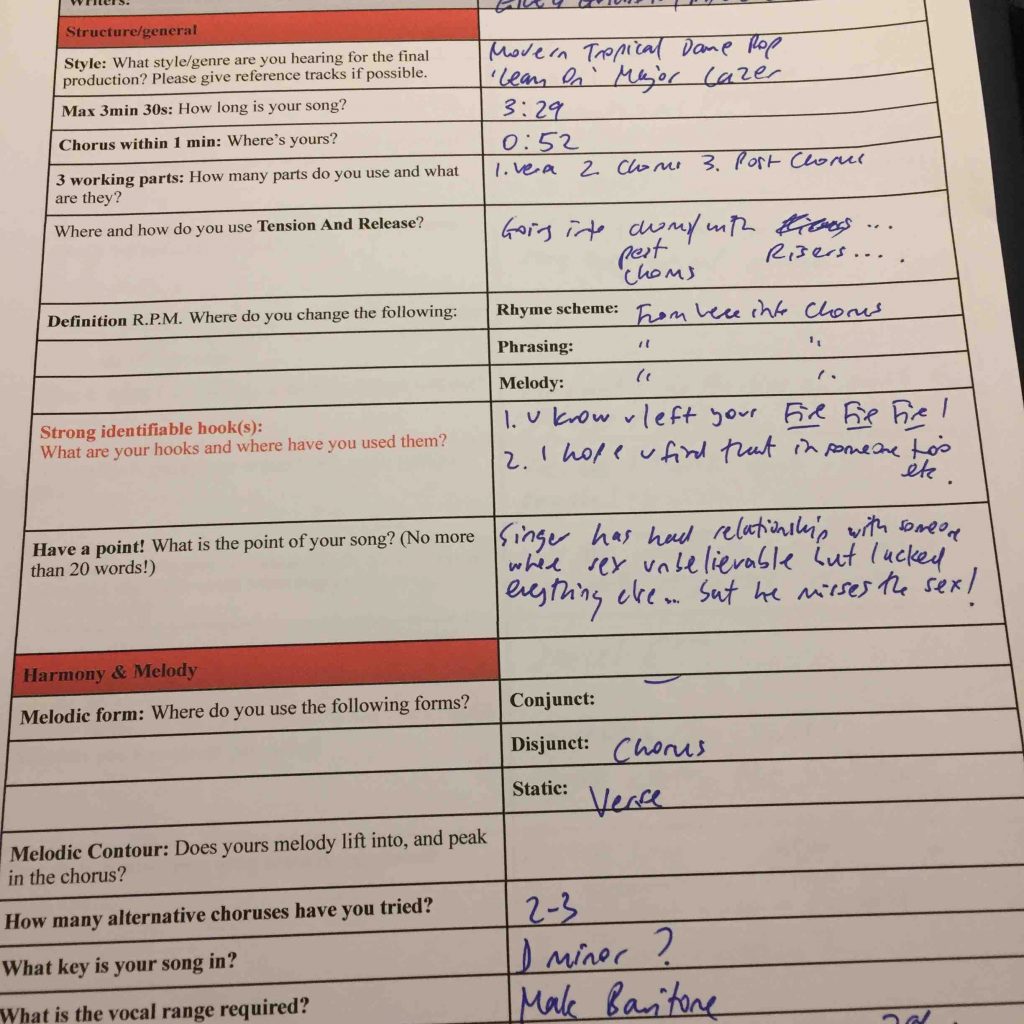 Writers:
Structure/general
Style: What style/genre are you hearing for the final
production? Please give reference tracks if possible.
Modern Tropical Dance Pop
'Lean On' Major Lazer
Max 3min 30s: How long is your song?
3:29
Chorus within 1 min: Where's yours?
0:52
3 working parts: How many parts do you use and what
are they?
1. Verse 2. Chorus 3. Post Chorus
Where and how do you use Tension And Release?
Going into chorus with ...
post Risers....
chorus
Definition R.P.M. Where do you change the following:
Rhyme scheme: From verse into Chorus
Phrasing: " "
Melody: " "
Strong identifiable hook(s):
What are your hooks and where have you used them?
1. U know u left your Fire Fire Fire!
2. I hope u find that in someone too
etc.
Have a point! What is the point of your song? (No more
than 20 words!)
Singer has had relationship with someone
where sex unbelievable but lacked
everything else... but he misses the sex!
Harmony & Melody
Melodic form: Where do you use the following forms?
Conjunct: –
Disjunct: Chorus
Static: Verse
Melodic Contour: Does yours melody lift into, and peak
in the chorus?
How many alternative choruses have you tried?
2-3
What key is your song in?
D minor ?
What is the vocal range required?
Male Baritone